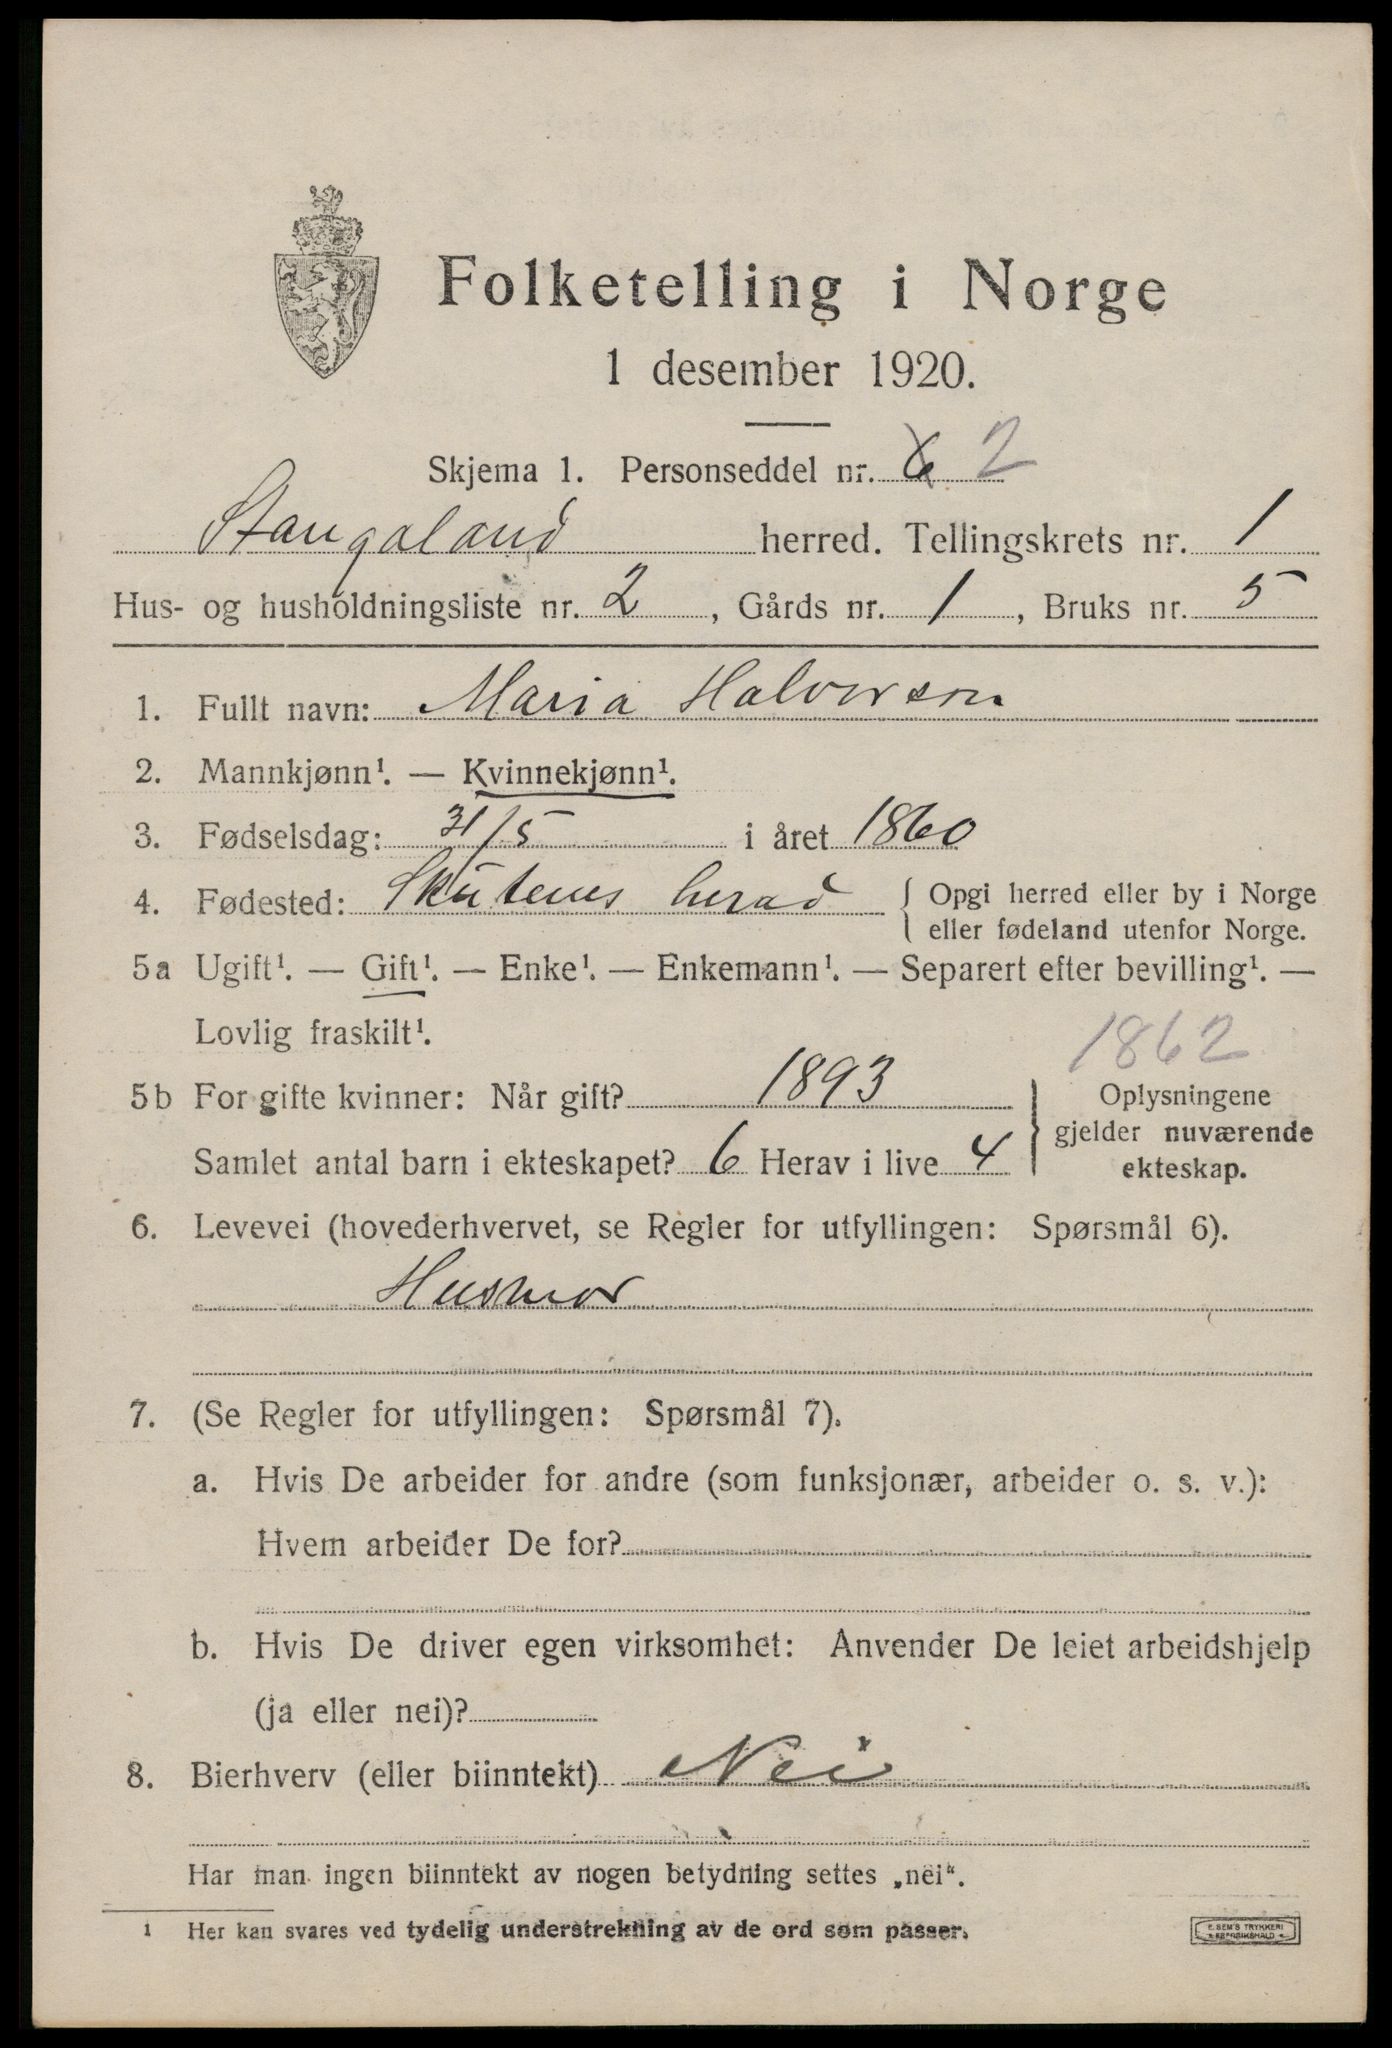 Folketelling i Norge
1 desember 1920.
Skjema 1. Personseddel nr. 6 2
Stangaland herred. Tellingskrets nr. 1
Hus- og husholdningsliste nr. 2, Gårds nr. 1, Bruks nr. 5
1. Fullt navn: Maria Halvorsen
2. Mannkjønn¹. — Kvinnekjønn¹.
3. Fødselsdag: 31/5 i året 1860
4. Fødested: Skutenes herad { Opgi herred eller by i Norge
eller fødeland utenfor Norge.
5a Ugift¹. — Gift¹. — Enke¹. — Enkemann¹. — Separert efter bevilling¹. —
Lovlig fraskilt¹.
1862
5b For gifte kvinner: Når gift? 1893
Samlet antal barn i ekteskapet? 6 Herav i live 4
} Oplysningene
gjelder nuværende
ekteskap.
6. Levevei (hovederhvervet, se Regler for utfyllingen: Spørsmål 6).
Husmor
7. (Se Regler for utfyllingen: Spørsmål 7).
a. Hvis De arbeider for andre (som funksjonær, arbeider o. s. v.):
Hvem arbeider De for?
b. Hvis De driver egen virksomhet: Anvender De leiet arbeidshjelp
(ja eller nei)?
8. Bierhverv (eller biinntekt) Nei
Har man ingen biinntekt av nogen betydning settes „nei".
¹ Her kan svares ved tydelig understrekning av de ord som passer.
E. SEM'S TRYKKERI
FREDRIKSHALD